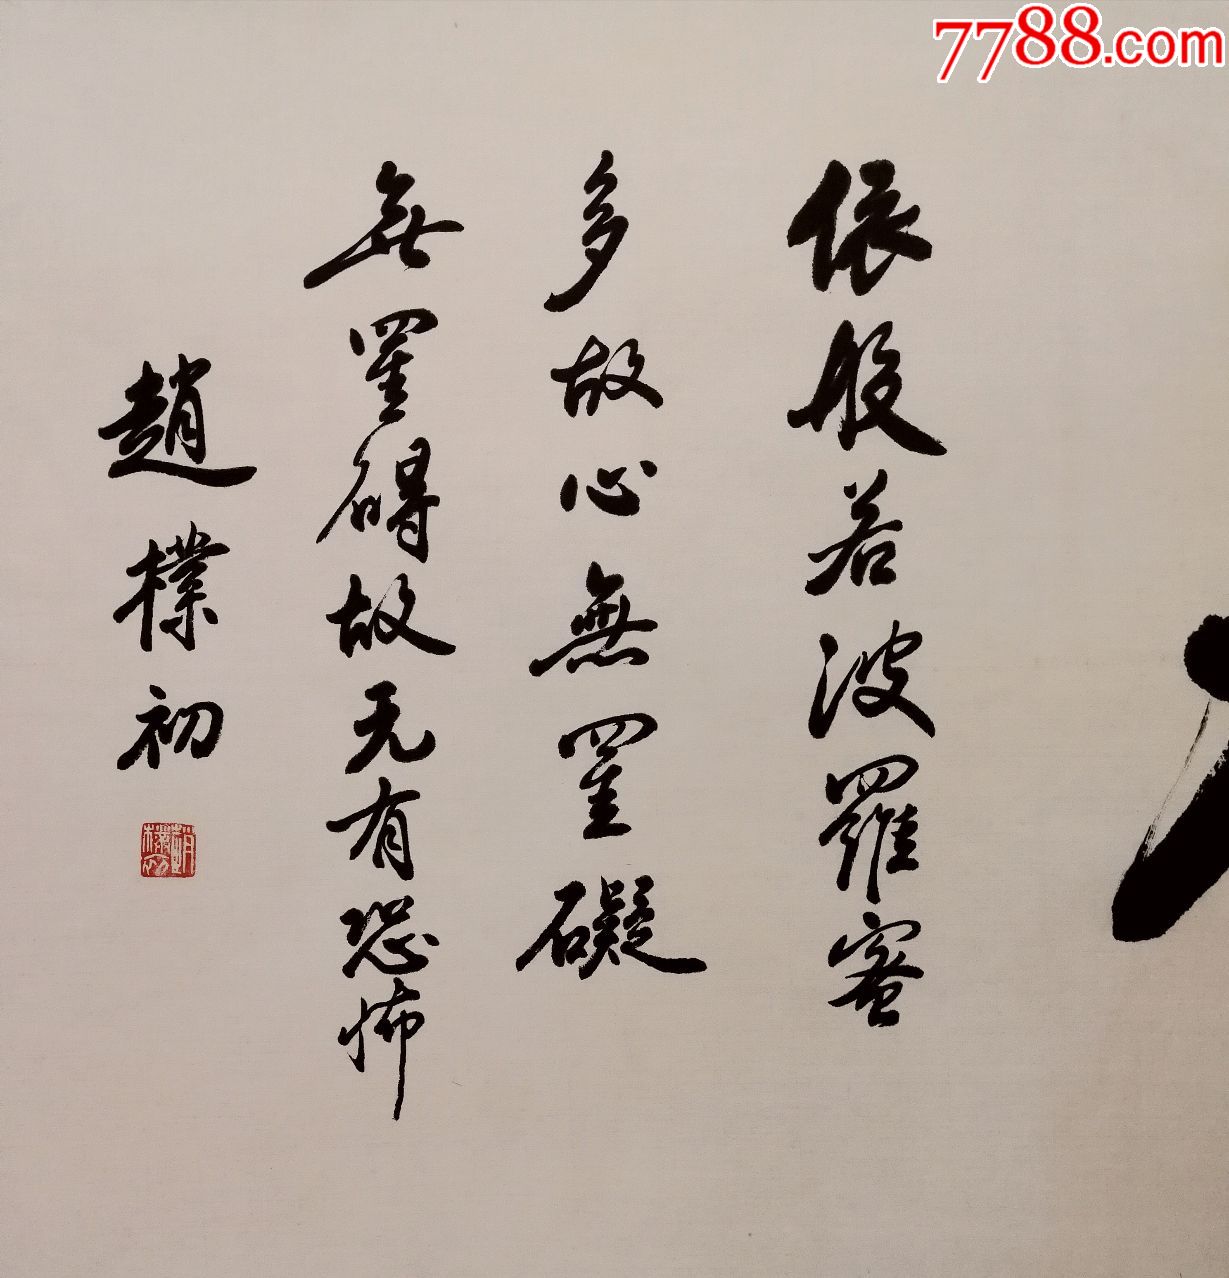 7788.com
依般若波羅蜜
多故心無罣礙
無罣碍故无有恐怖
趙樸初
趙樸初